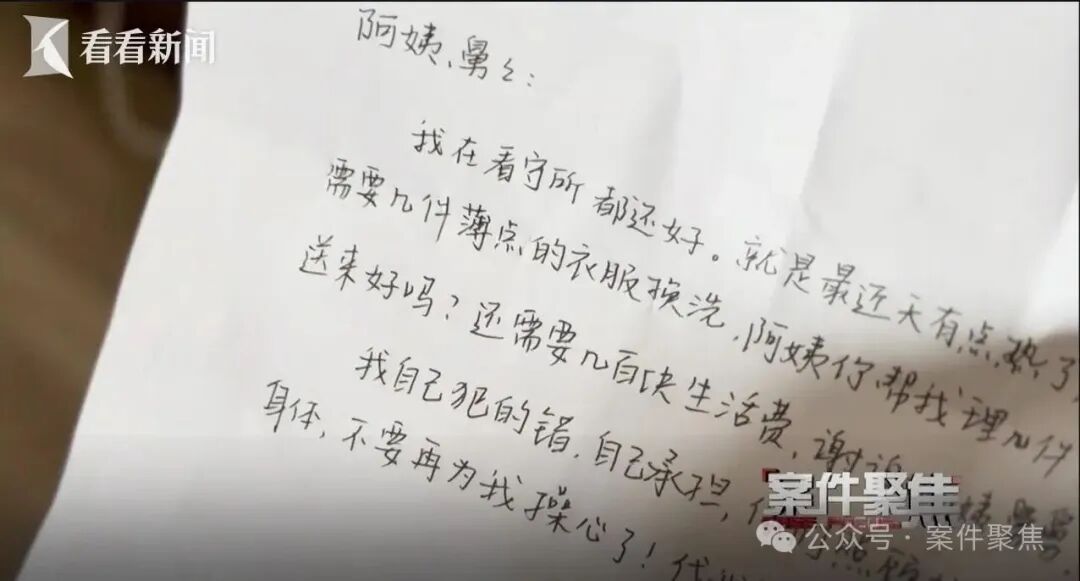 看看新闻
阿姨、舅々：
我在看守所都还好。就是最近天有点热了
需要几件薄点的衣服换洗，阿姨你帮我理几件
送来好吗？还需要几百块生活费，谢
我自己犯的错，自己承担，
身体，不要再为我操心了！代
案件聚焦
公众号·案件聚焦